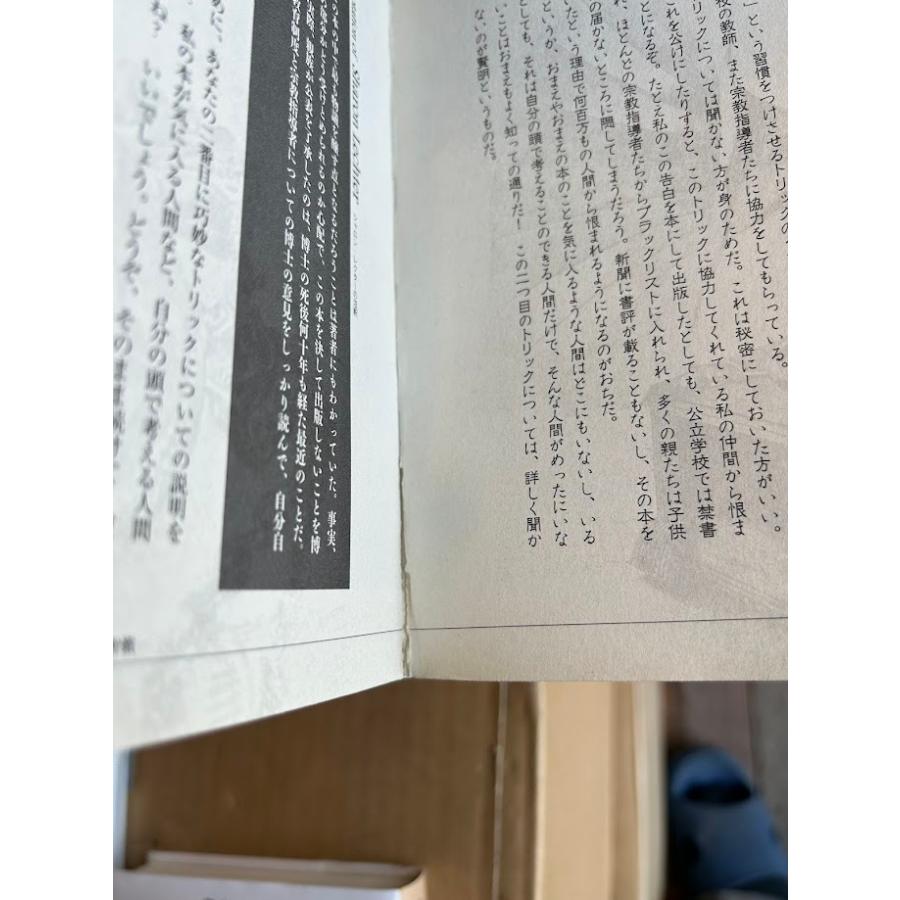 」という習慣をつけさせるトリックの
校の教師、また宗教指導者たちに協力をしてもらっている。
リックについては聞かない方が身のためだ。これは秘密にしておいた方がいい。
これを公けにしたりすると、このトリックに協力してくれている私の仲間から恨ま
ことになるぞ。たとえ私のこの告白を本にして出版したとしても、公立学校では禁書
れ、ほとんどの宗教指導者たちからブラックリストに入れられ、多くの親たちは子供
の届かないところに隠してしまうだろう。新聞に書評が載ることもないし、その本を
いたという理由で何百万もの人間から恨まれるようになるのがおちだ。
というか、おまえやおまえの本のことを気に入るような人間はどこにもいないし、いる
としても、それは自分の頭で考えることのできる人間だけで、そんな人間がめったにいな
いことはおまえもよく知っての通りだ！この二つ目のトリックについては、詳しく聞か
ないのが賢明というものだ。
Sharon Lechter
シャロン・レクターの注釈
の本の中で最も物議を醸す点となるだろうことは著者にもわかっていた。事実、
受けとめられるのか心配で、この本を決して出版しないことを博
家族が公表を了承したのは、博士の死後何十年も経た最近のことだ。
教育制度と宗教指導者についての博士の意見をしっかり読んで、自分自
めに、あなたの二番目に巧妙なトリックについての説明を
私の本が気に入る人間など、自分の頭で考える人間
ね？ いいでしょう。どうぞ、そのまま続け